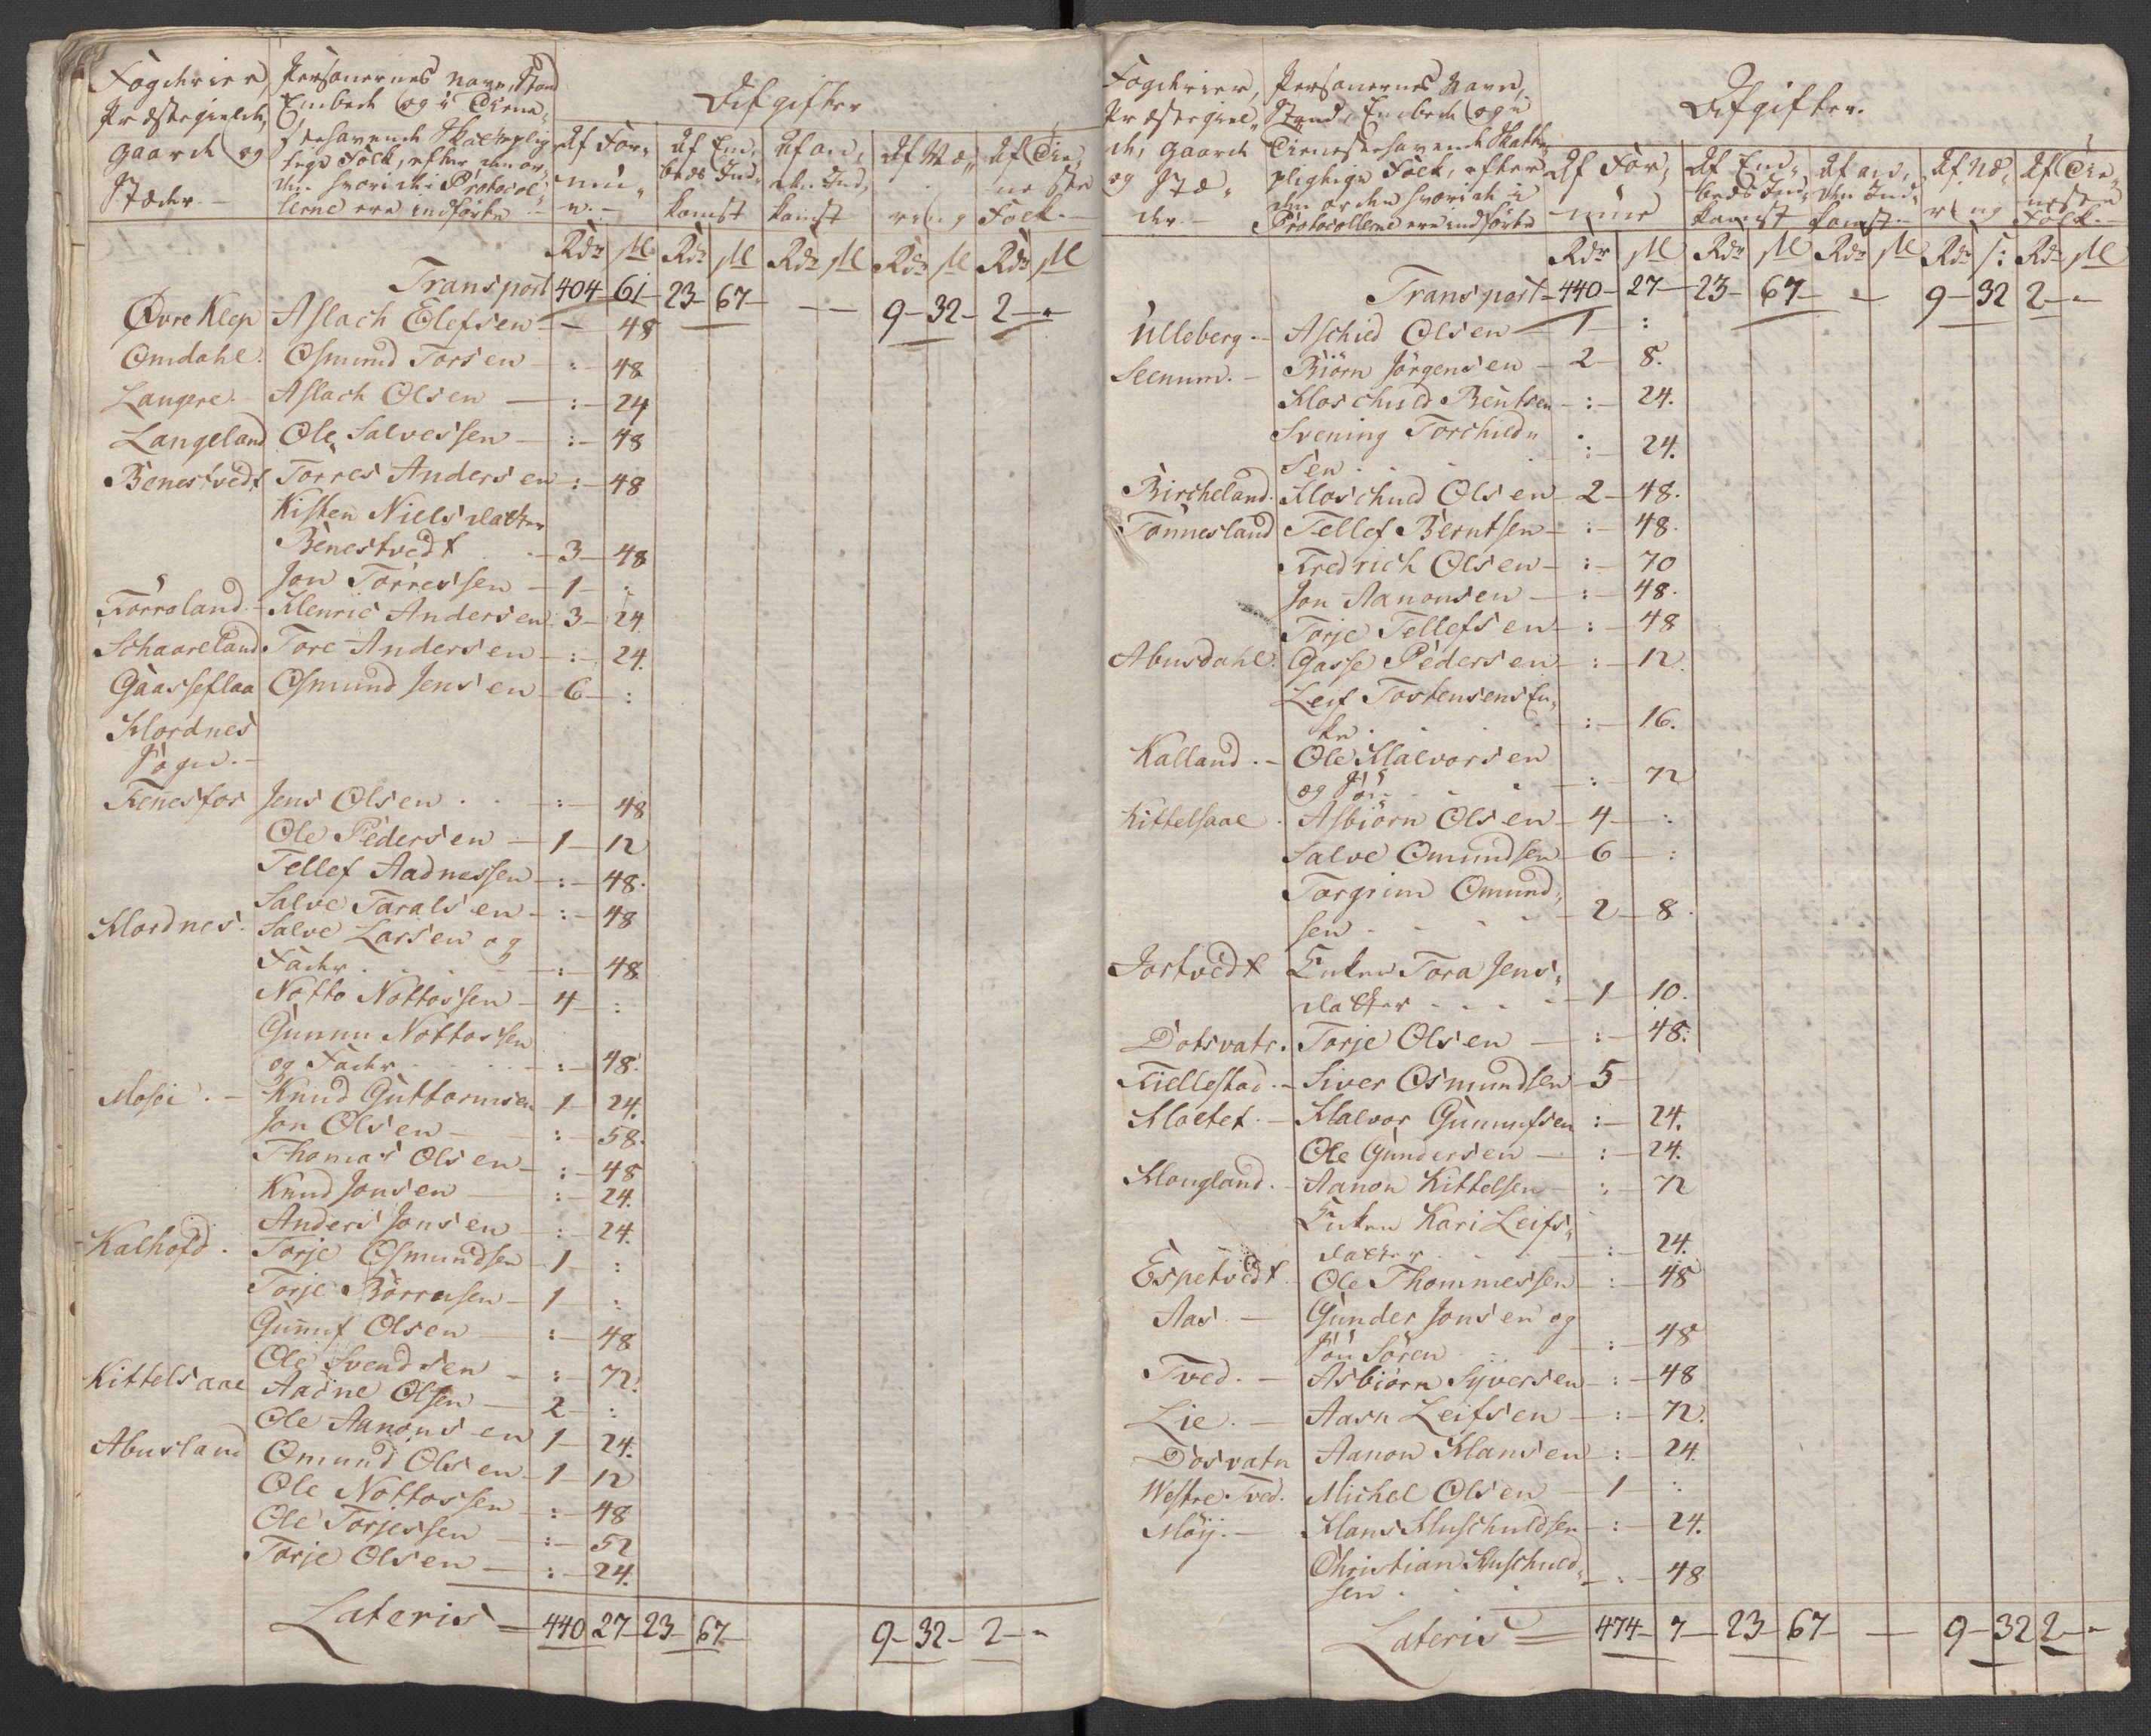 Fogderier, Personernes Navn, Stand
Præstegield, Embede og i Tiene-
gaarde og stehavende Skattepligtige
Stæder. Folk, efter den or-
den hvori de i Protocol-
lerne ere indførte
Afgifter
Af For- mue Af Em- beds Ind- komst Af an- den Ind- komst Af Næ- ring Af Tie- neste Folk.
Rdr ſl Rdr ſl Rdr ſl Rdr ſl Rdr ſl
Transport 404 61 23 67 — 9 32 2 "
Øvre Klep Aslach Elefsen — 48
Omdahl. Osmund Torsen : 48
Langere. Aslach Olsen : 24
Langeland Ole Salvessen : 48
Benestvedt Torres Andersen : 48
Kisten Niels datter
Benestvedt 3 48
Jon Torressen 1 :
Torroland Henric Andersen 3 24
Schaareland Tore Andersen : 24.
Gaasseflaa Osmund Jensen 6 :
Hordnes
Sogn.
Fennesfos Jens Olsen : 48
Ole Pedersen 1 12
Tellef Aadnessen : 48.
Salve Taralsen : 48
Hordnes. Salve Larsen og
Fader : 48
Notto Nottossen 4 :
Gunnu Nottossen
og Fader : 48.
Mosoi. Knud Guttormsen 1 24.
Jon Olsen : 58.
Thomas Olsen : 48
Knud Jonsen : 24.
Anders Jonsen : 24.
Kalhofd. Torje Osmundsen 1 :
Torje Börresen 1 :
Gunnuf Olsen : 48
Ole Svendsen : 72.
Kittelsaae Aadne Olsen 2 :
Ole Aanonsen 1 24.
Abusland Omund Olsen 1 12
Ole Nottossen : 48
Ole Torjessen : 52
Torje Olsen : 24.
Lateris 440 27 23 67 9 32 2 "
Fogderier, Personernes Navn,
Præstegiel- Stand, Embede og i
de, gaarde Tienestehavende Skatte-
og Stæ- pligtige Folk, efter
der. den orden hvori de i
Protocollerne ere indførte
Afgifter.
Af For- mue Af Em- beds Ind- komst Af an- den Ind- komst. Af Næ- ring Af Tie- neste Folk.
Rdr ſl Rdr ſl Rdr ſl Rdr ſ: Rdr ſl
Transport 440 27 23 67 — 9 32 2 "
Ulleberg. Aschied Olsen 1 :
Seenum. Biörn Jörgensen 2 8.
Hoschuld Bentsen : 24.
Svening Torchild-
sen : 24.
Bircheland. Hoschuld Olsen 2 48.
Tonnesland Tellef Berntsen : 48.
Fredrich Olsen : 70
Jon Aanonsen : 48.
Torje Tellefsen : 48
Abusdahl. Gasse Pedersen : 12.
Leif Tostensens En-
ke : 16.
Kalland. Ole Halvorsen
og Sön : 72
Kittelsaae. Asbiörn Olsen 4 :
Salve Omundsen 6 :
Torgrim Omund-
sen 2 8
Jortvedt Enken Tora Jens-
datter 1 10.
Dotsvatr. Torje Olsen : 48.
Kiellestad. Siver Osmundsen 5
Hoetet. Halvor Gunnufsen : 24.
Ole Gundersen : 24.
Hougland. Aanon Kittelsen : 72
Enken Kari Leifs-
datter : 24.
Espetvedt Ole Thommessen : 48
Aas. Gunder Jonsen og
Sön Sören : 48
Tved. Asbiörn Syversen : 48
Lie. Aasu Leifsen : 72.
Dosvatn Aanon Hansen : 24
Westre Tved. Michel Olsen 1 :
Möy. Hans Huschuldsen : 24.
Christian Huschuld-
sen : 48
Lateris 474 7 23 67 — 9 32 2 "